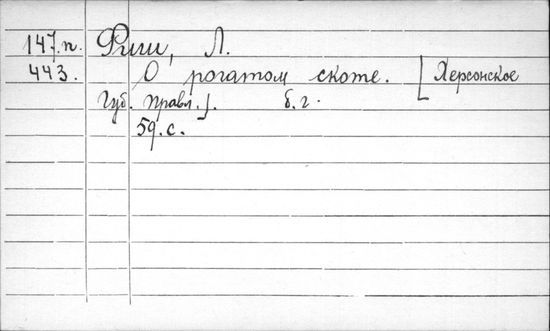 147.п. Фиш, Л.
443. О рогатом скоте. [Херсонское
Губ. правл.]. б. г.
59. с.